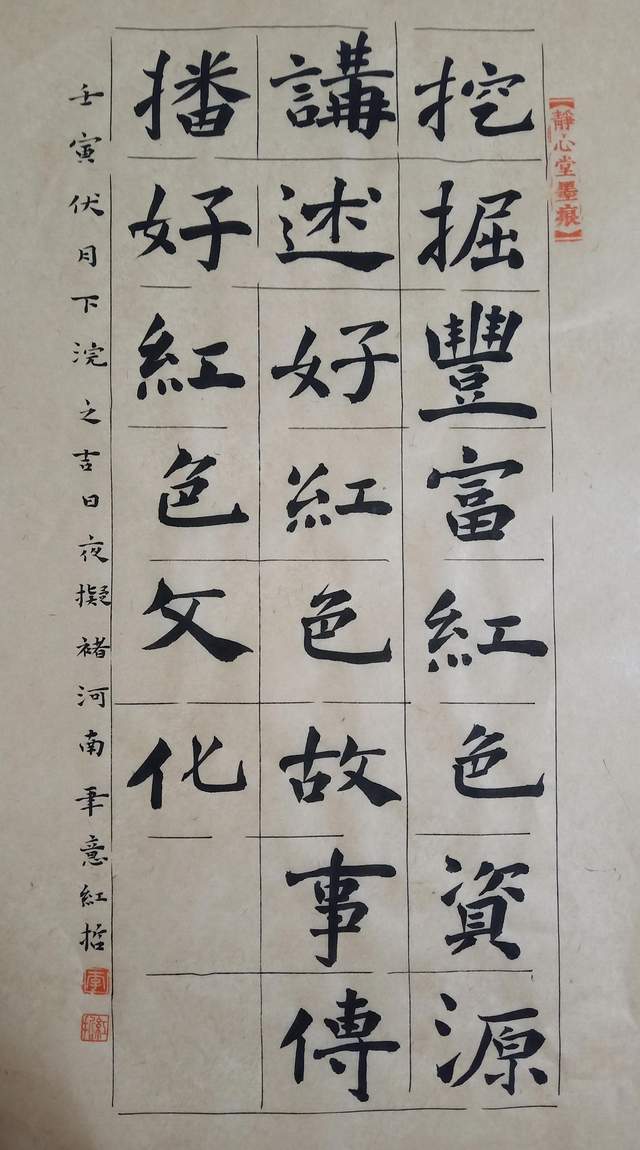 【靜心堂墨痕】
挖掘豐富紅色資源
講述好紅色故事傳
播好紅色文化
壬寅伏月下浣之吉日夜擬褚河南筆意紅哲